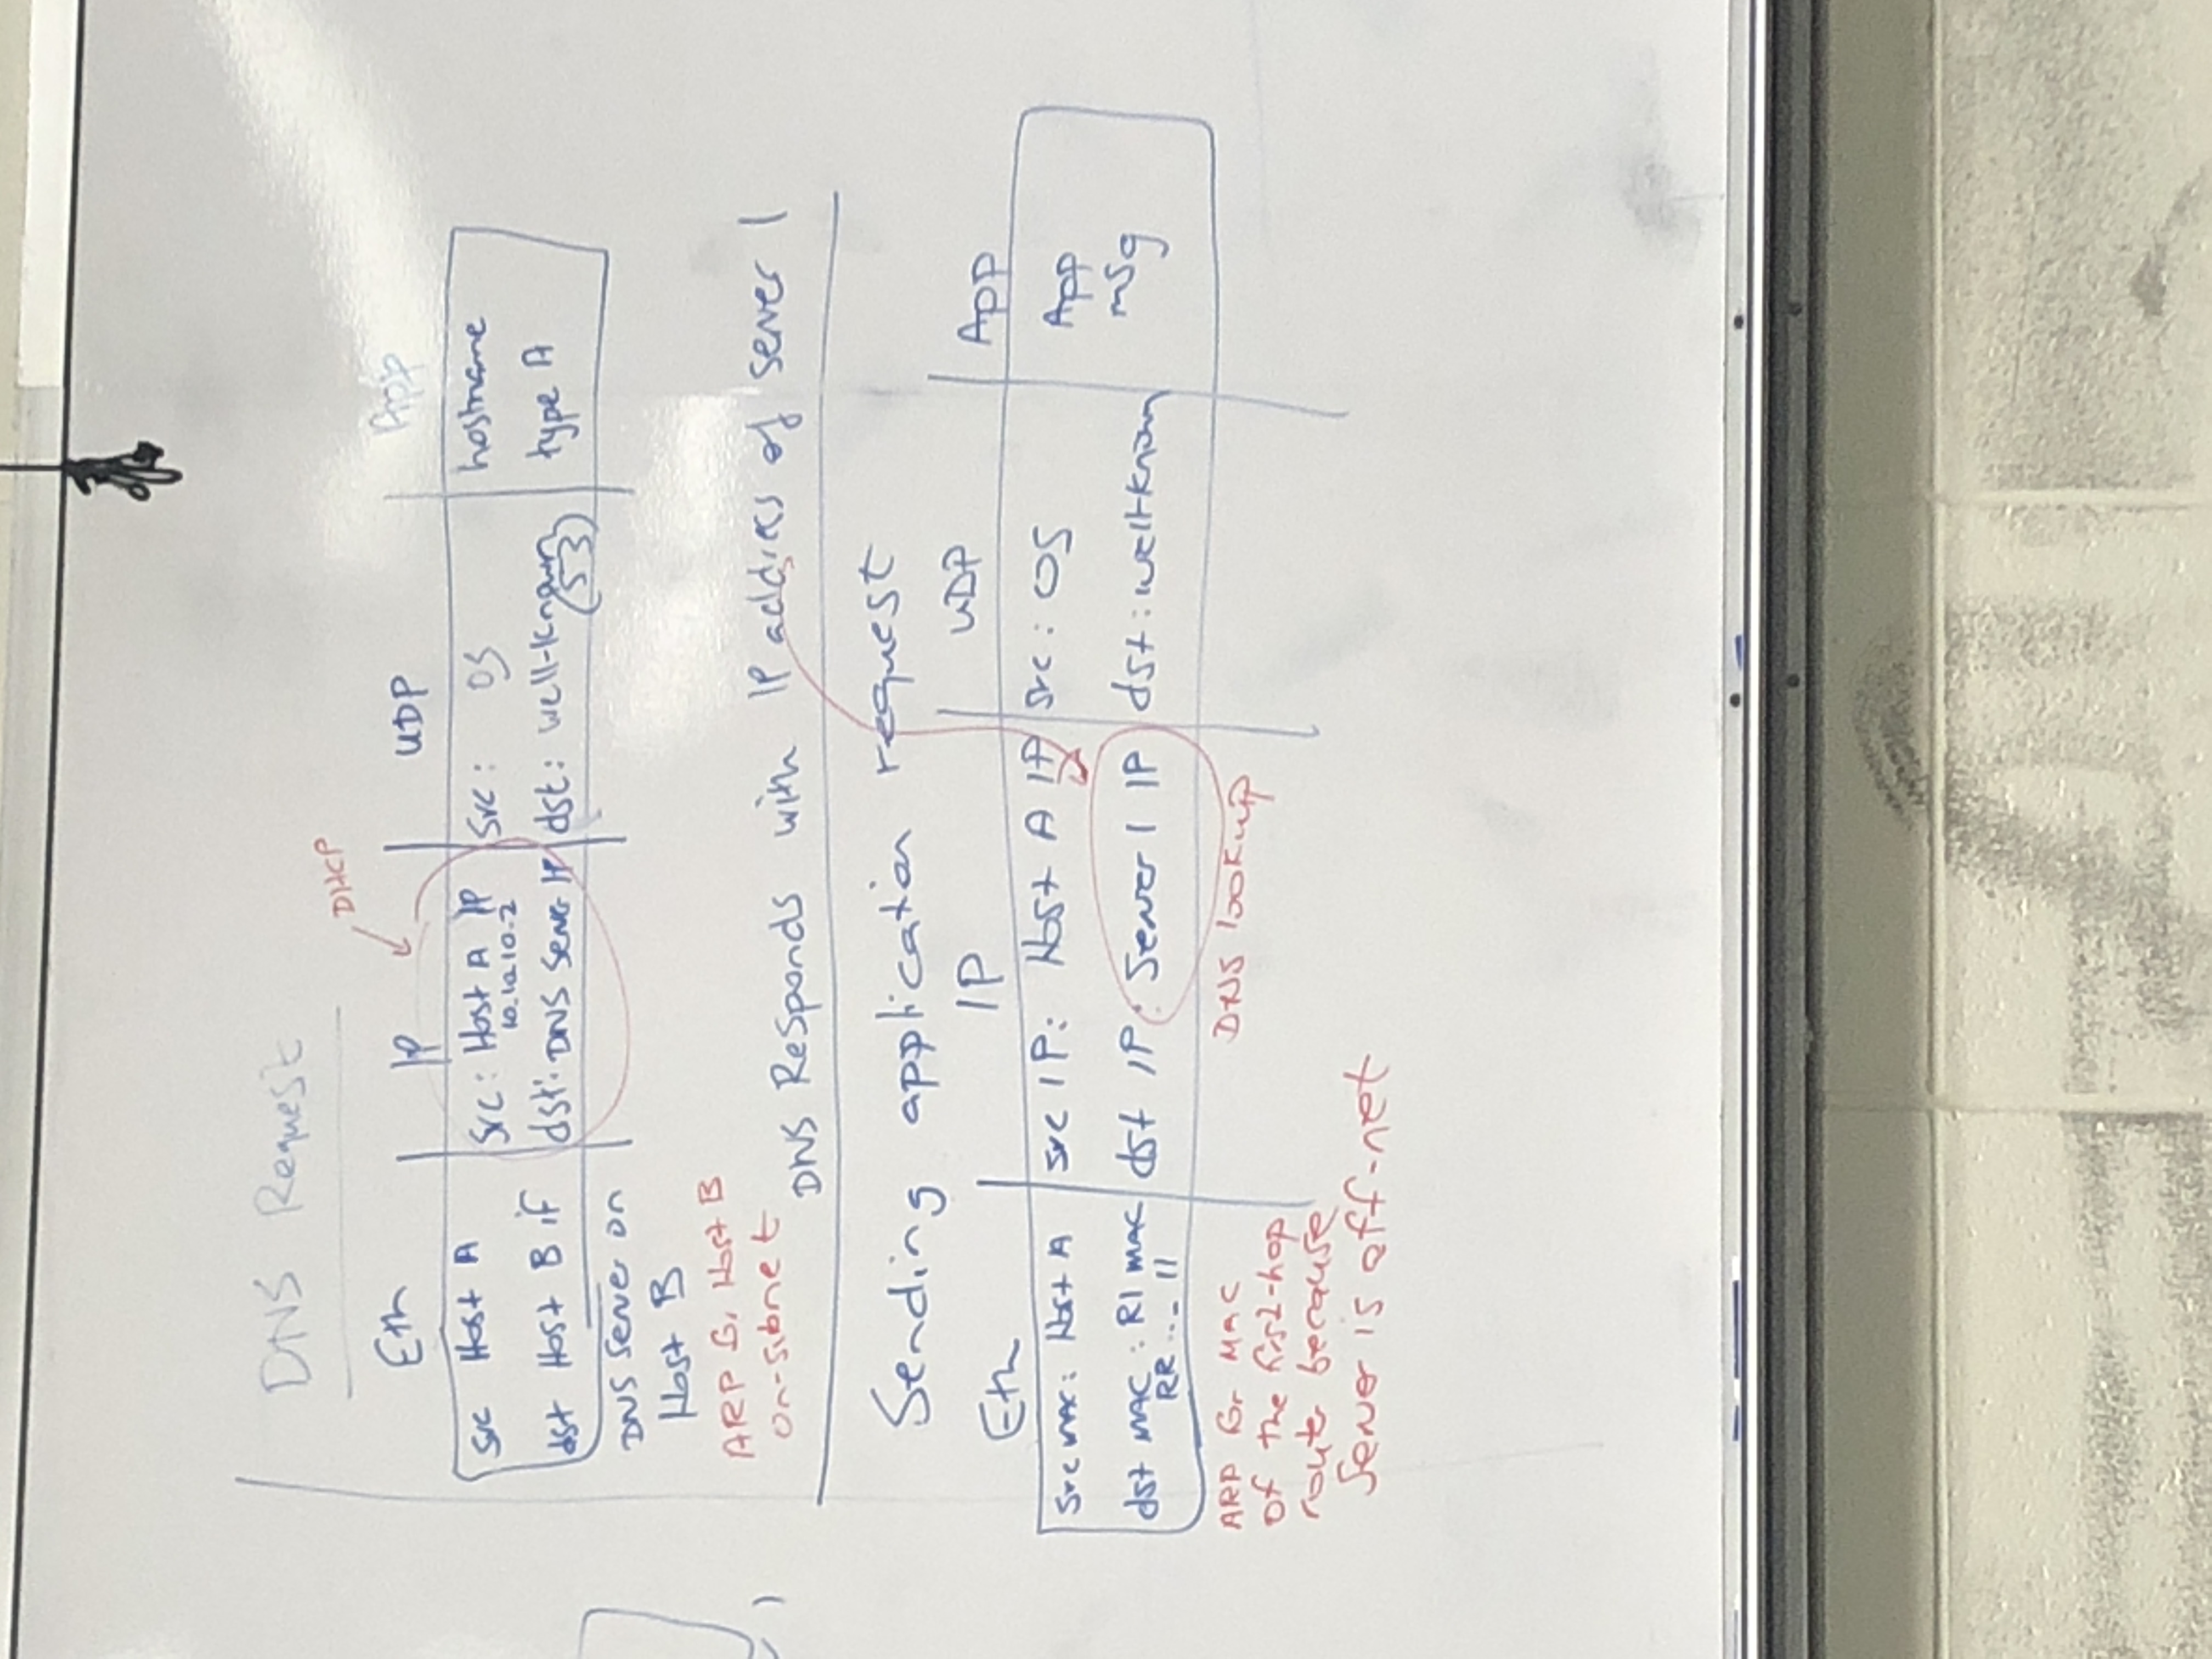 DNS Request
DHCP
Eth IP UDP App
src Host A src: Host A IP src: OS hostname
10.10.10.2
dst Host B if dst: DNS Server IP dst: well-known type A
(53)
DNS Server on
Host B
ARP for Host B
on-subnet
DNS Responds with IP address of server 1
Sending application request
Eth IP UDP App
src MAC: Host A src IP: Host A IP src: OS App
dst MAC: R1 MAC dst IP: Server 1 IP dst: well-known msg
RR... 11
ARP for MAC DNS lookup
of the first-hop
router because
Server is off-net